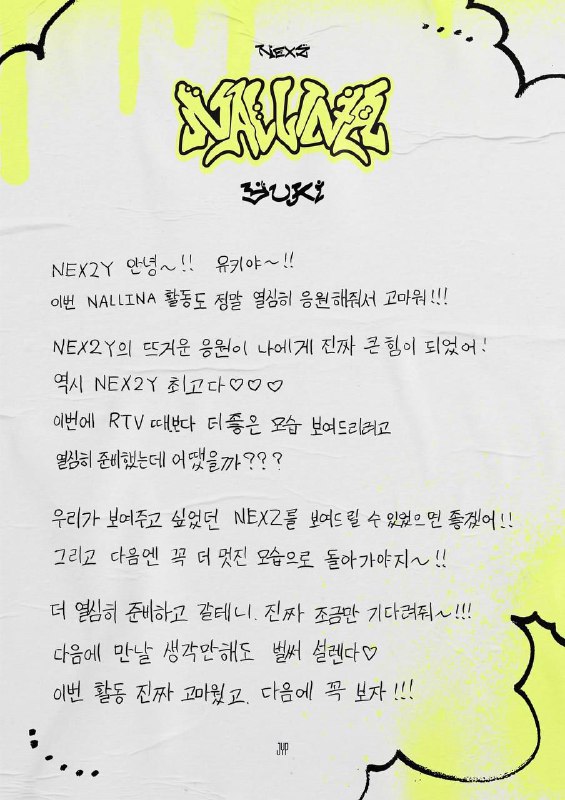 NEXZ
NALLINA
YUKI
NEX2Y 안녕~!! 유키야~!!
이번 NALLINA 활동도 정말 열심히 응원해줘서 고마워!!!
NEX2Y의 뜨거운 응원이 나에게 진짜 큰 힘이 되었어!
역시 NEX2Y 최고다♡♡♡
이번에 RTV 때보다 더 좋은 모습 보여드리려고
열심히 준비했는데 어땠을까???
우리가 보여주고 싶었던 NEXZ를 보여드릴 수 있었으면 좋겠어!!
그리고 다음엔 꼭 더 멋진 모습으로 돌아가야지~!!
더 열심히 준비하고 갈테니. 진짜 조금만 기다려줘~!!!
다음에 만날 생각만해도 벌써 설렌다♡
이번 활동 진짜 고마웠고. 다음에 꼭 보자!!!
JYP